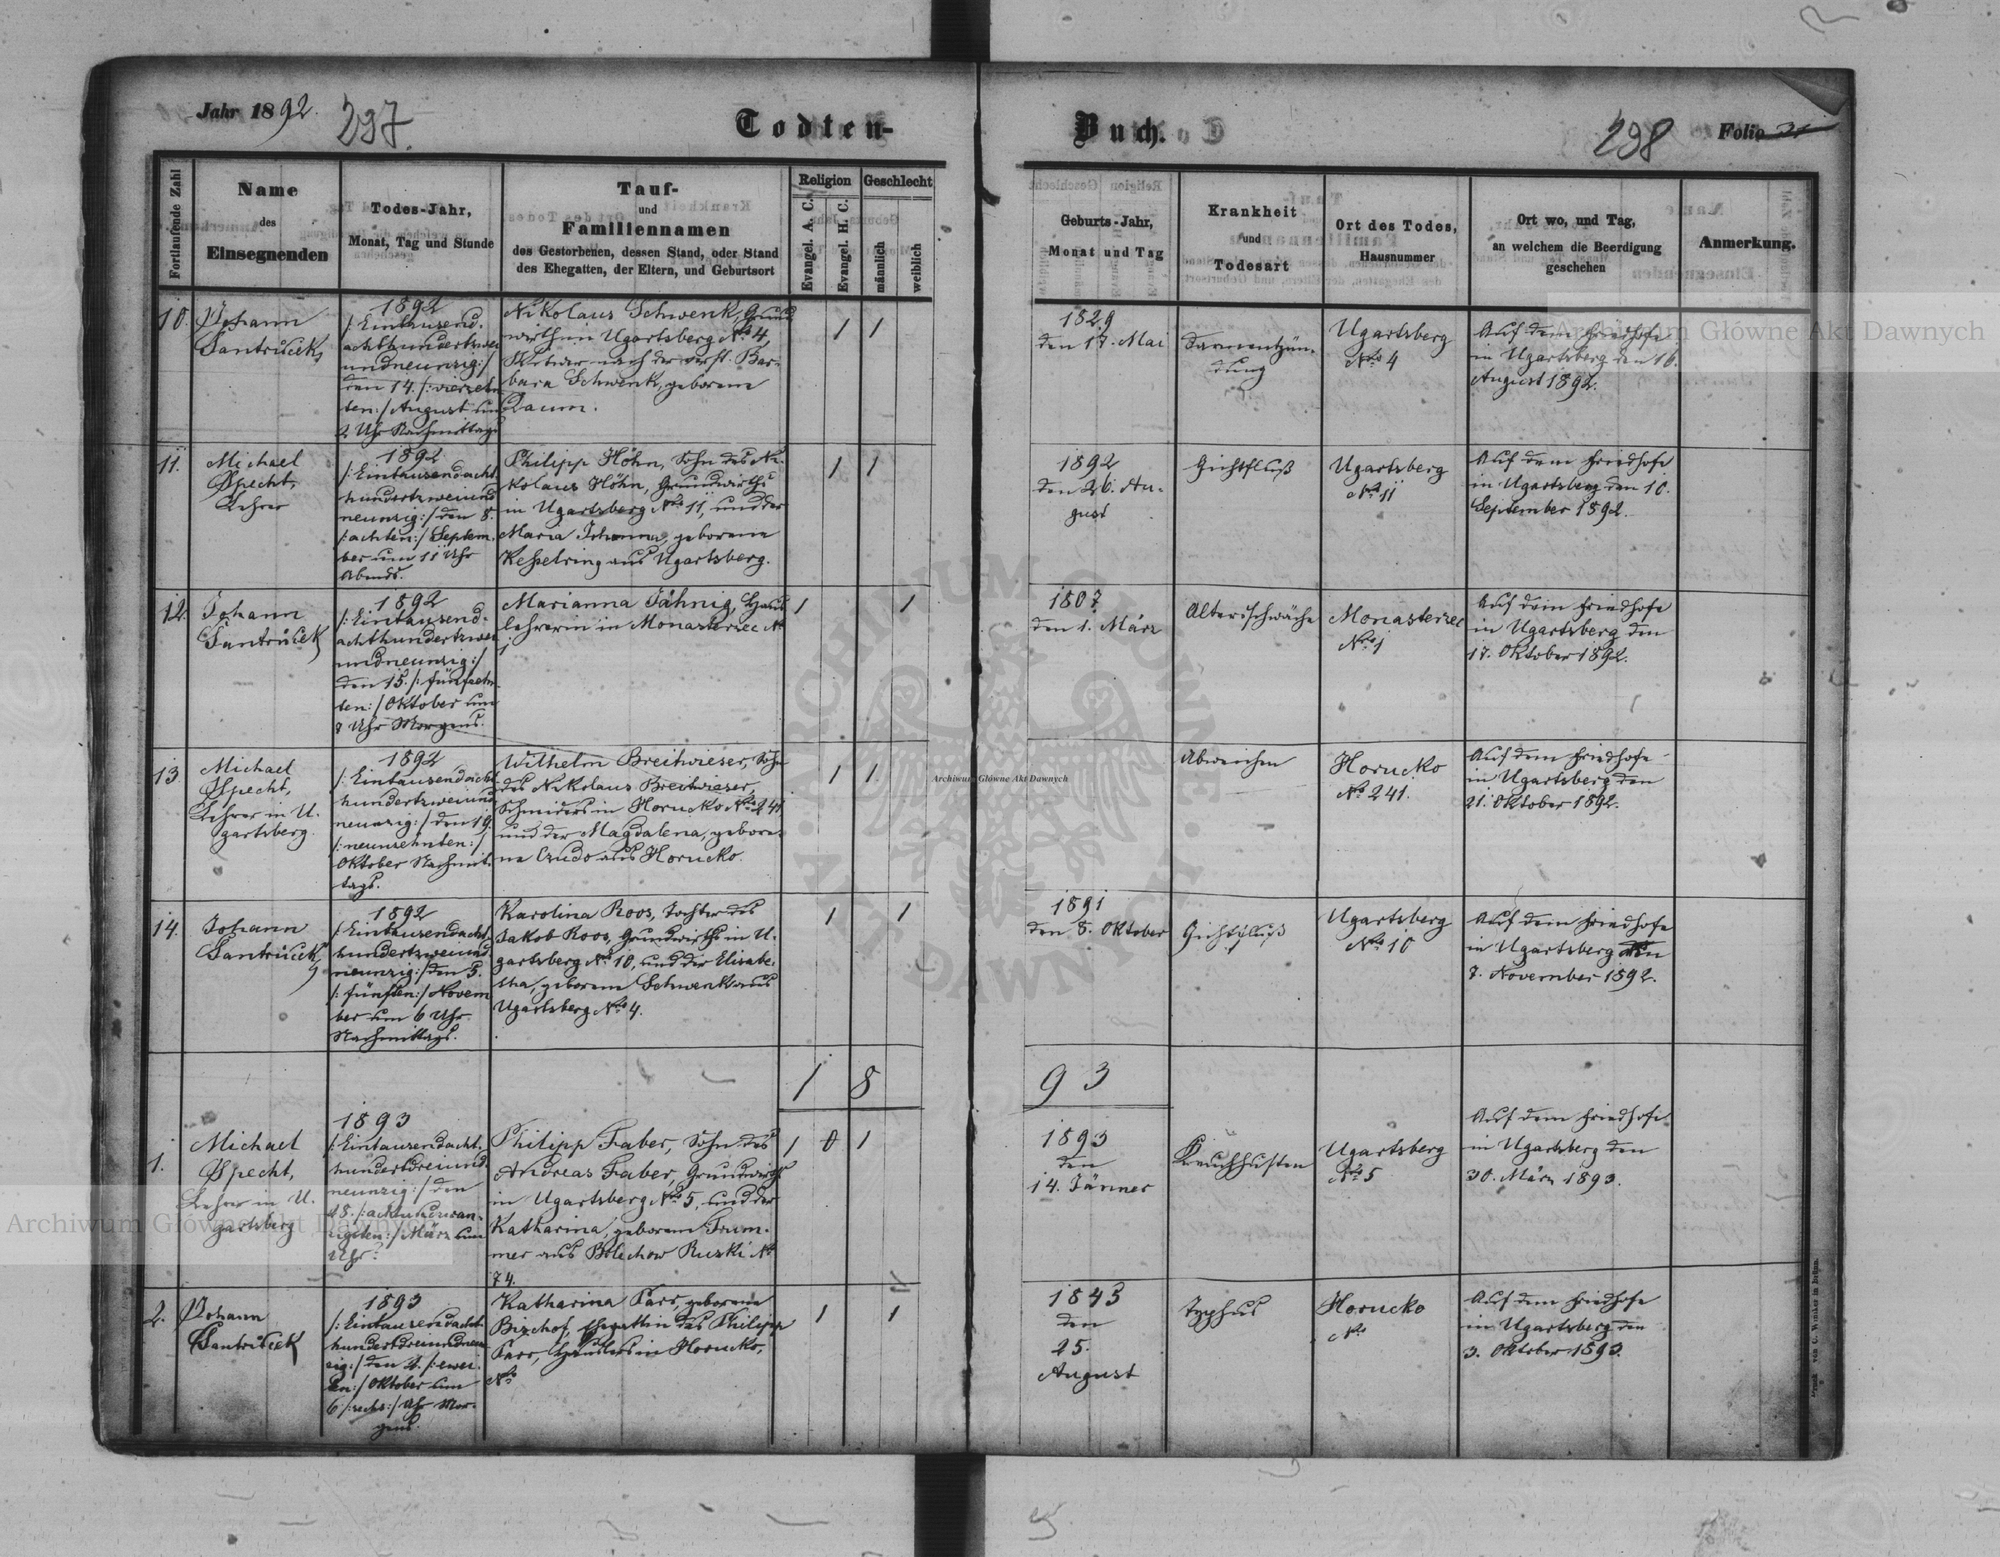 Jahr 1892.
237.
Todten-
Buch.
238
Folio 21
Fortlaufende Zahl
Name
des
Einsegnenden
Todes-Jahr,
Monat, Tag und Stunde
Tauf-
und
Familiennamen
des Gestorbenen, dessen Stand, oder Stand
des Ehegatten, der Eltern, und Geburtsort
Religion
Evangel. A. C.
Evangel. H. C.
Geschlecht
männlich
weiblich
Geburts-Jahr,
Monat und Tag
Krankheit
und
Todesart
Ort des Todes,
Hausnummer
Ort wo, und Tag,
an welchem die Beerdigung
geschehen
Anmerkung.
10.
Johann
Santrůček,
1892
/: Eintausend-
achthundertzwei
undneunzig :/
den 14. /: vierzehn
ten :/ August um
2 Uhr Nachmittags
Nikolaus Schwenk, Grund
wirth in Ugartsberg No 4,
Witwer nach der verst. Bar-
bara Schwenk, geborene
Daum.
1
1
1829
den 17. Mai
Darmentzün-
dung
Ugartsberg
No 4
Auf dem Friedhofe
in Ugartsberg den 16.
August 1892.
11.
Michael
Specht,
Lehrer
1892
/: Eintausendacht
hundertzweiund
neunzig :/ den 8.
/: achten :/ Septem-
ber um 11 Uhr
Abends.
Philipp Höhn, Sohn des Ni-
kolaus Höhn, Grundwirths
in Ugartsberg No 11, und der
Maria Johanna, geborene
Kesselring aus Ugartsberg.
1
1
1892
den 26. Au-
gust
Gichtfluß
Ugartsberg
No 11
Auf dem Friedhofe
in Ugartsberg den 10.
September 1892.
12.
Johann
Santrůček
1892
/: Eintausend-
achthundertzwei
undneunzig :/
den 15. /: fünfzehn-
ten :/ Oktober um
8 Uhr Morgens.
Marianna Jähnig, Haus
lehrerin in Monasterzec No
1
1
1
1807
den 1. März
Altersschwäche
Monasterzec
No 1
Auf dem Friedhofe
in Ugartsberg den
17. Oktober 1892.
13.
Michael
Specht,
Lehrer in U-
gartsberg.
1892
/: Eintausendacht
hundertzweiund
neunzig :/ den 19.
/: neunzehnten :/
Oktober Nachmit-
tags.
Wilhelm Breitwieser, Sohn
des Nikolaus Breitwieser,
Schmiders in Horucko No 241
und der Magdalena, gebore-
ne Czudo aus Horucko.
1
1
Abweichen
Horucko
No 241.
Auf dem Friedhofe
in Ugartsberg den
21. Oktober 1892.
14.
Johann
Santrůček,
1892
/: Eintausendacht
hundertzweiund
neunzig :/ den 5.
/: fünften :/ Novem
ber um 6 Uhr
Nachmittags.
Karolina Roos, Tochter des
Jakob Roos, Grundwirths in U-
gartsberg No 10, und der Elisabe-
tha, geborene Schwenk aus
Ugartsberg No 4.
1
1
1891
den 8. Oktober
Gichtfluß
Ugartsberg
No 10
Auf dem Friedhofe
in Ugartsberg den
7. November 1892.
1 8
93
1.
Michael
Specht,
Lehrer in U-
gartsberg
1893
/: Eintausendacht-
hundertdreiund
neunzig :/ den
28. /: achtundzwan-
zigsten :/ März um
Uhr?
Philipp Faber, Sohn des
Andreas Faber, Grundwirths
in Ugartsberg No 5, und der
Katharina, geborene Trum-
mer aus Bolechow Ruski No
74.
1
0
1
1893
den
14. Jänner
Keuchhusten
Ugartsberg
No 5
Auf dem Friedhofe
in Ugartsberg den
30. März 1893.
2.
Johann
Santrůček
1893
/: Eintausendacht
hundertdreiundneun
zig :/ den 2. /: zwei-
ten :/ Oktober um
6 /: sechs :/ Uhr Mor-
gens.
Katharina Parr, geborene
Bischof, Ehegattin des Philipp
Parr, Häuslers in Horucko,
No
1
1
1843
den
25.
August
Typhus
Horucko
No
Auf dem Friedhofe
in Ugartsberg den
3. Oktober 1893.
Druck von C. Winiker in Brünn.
Archiwum Główne Akt Dawnych
Archiwum Główne Akt Dawnych
Archiwum Główne Akt Dawnych
ARCHIWUM GŁÓWNE AKT DAWNYCH